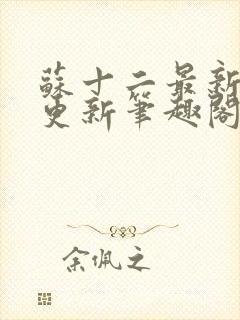 蘇十二最新
更新筆趣閣
余佩之